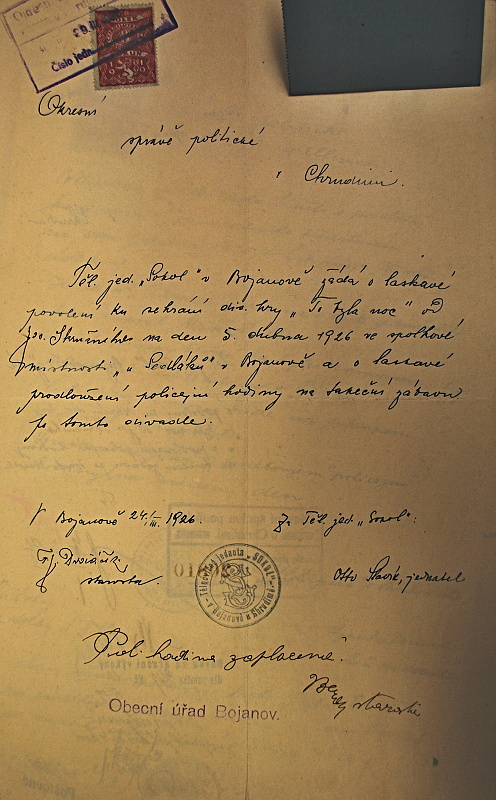 Číslo jedn
Okresní
správě politické
v Chrudimi.
Těl. jed. „Sokol" v Bojanově žádá o laskavé
povolení ku sehrání div. hry „To byla noc" od
Jos. na den 5. dubna 1926 ve spolkové
místnosti „u Sedláků" v Bojanově a o laskavé
prodloužení policejní hodiny na taneční zábavu
po tomto divadle.
V Bojanově 24./III. 1926. Za Těl. jed. „Sokol":
starosta. Otto Slavík, jednatel
Tělocvičná jednota „SOKOL" v Bojanově
Pol. hodina zaplacena.
starosta
Obecní úřad Bojanov.